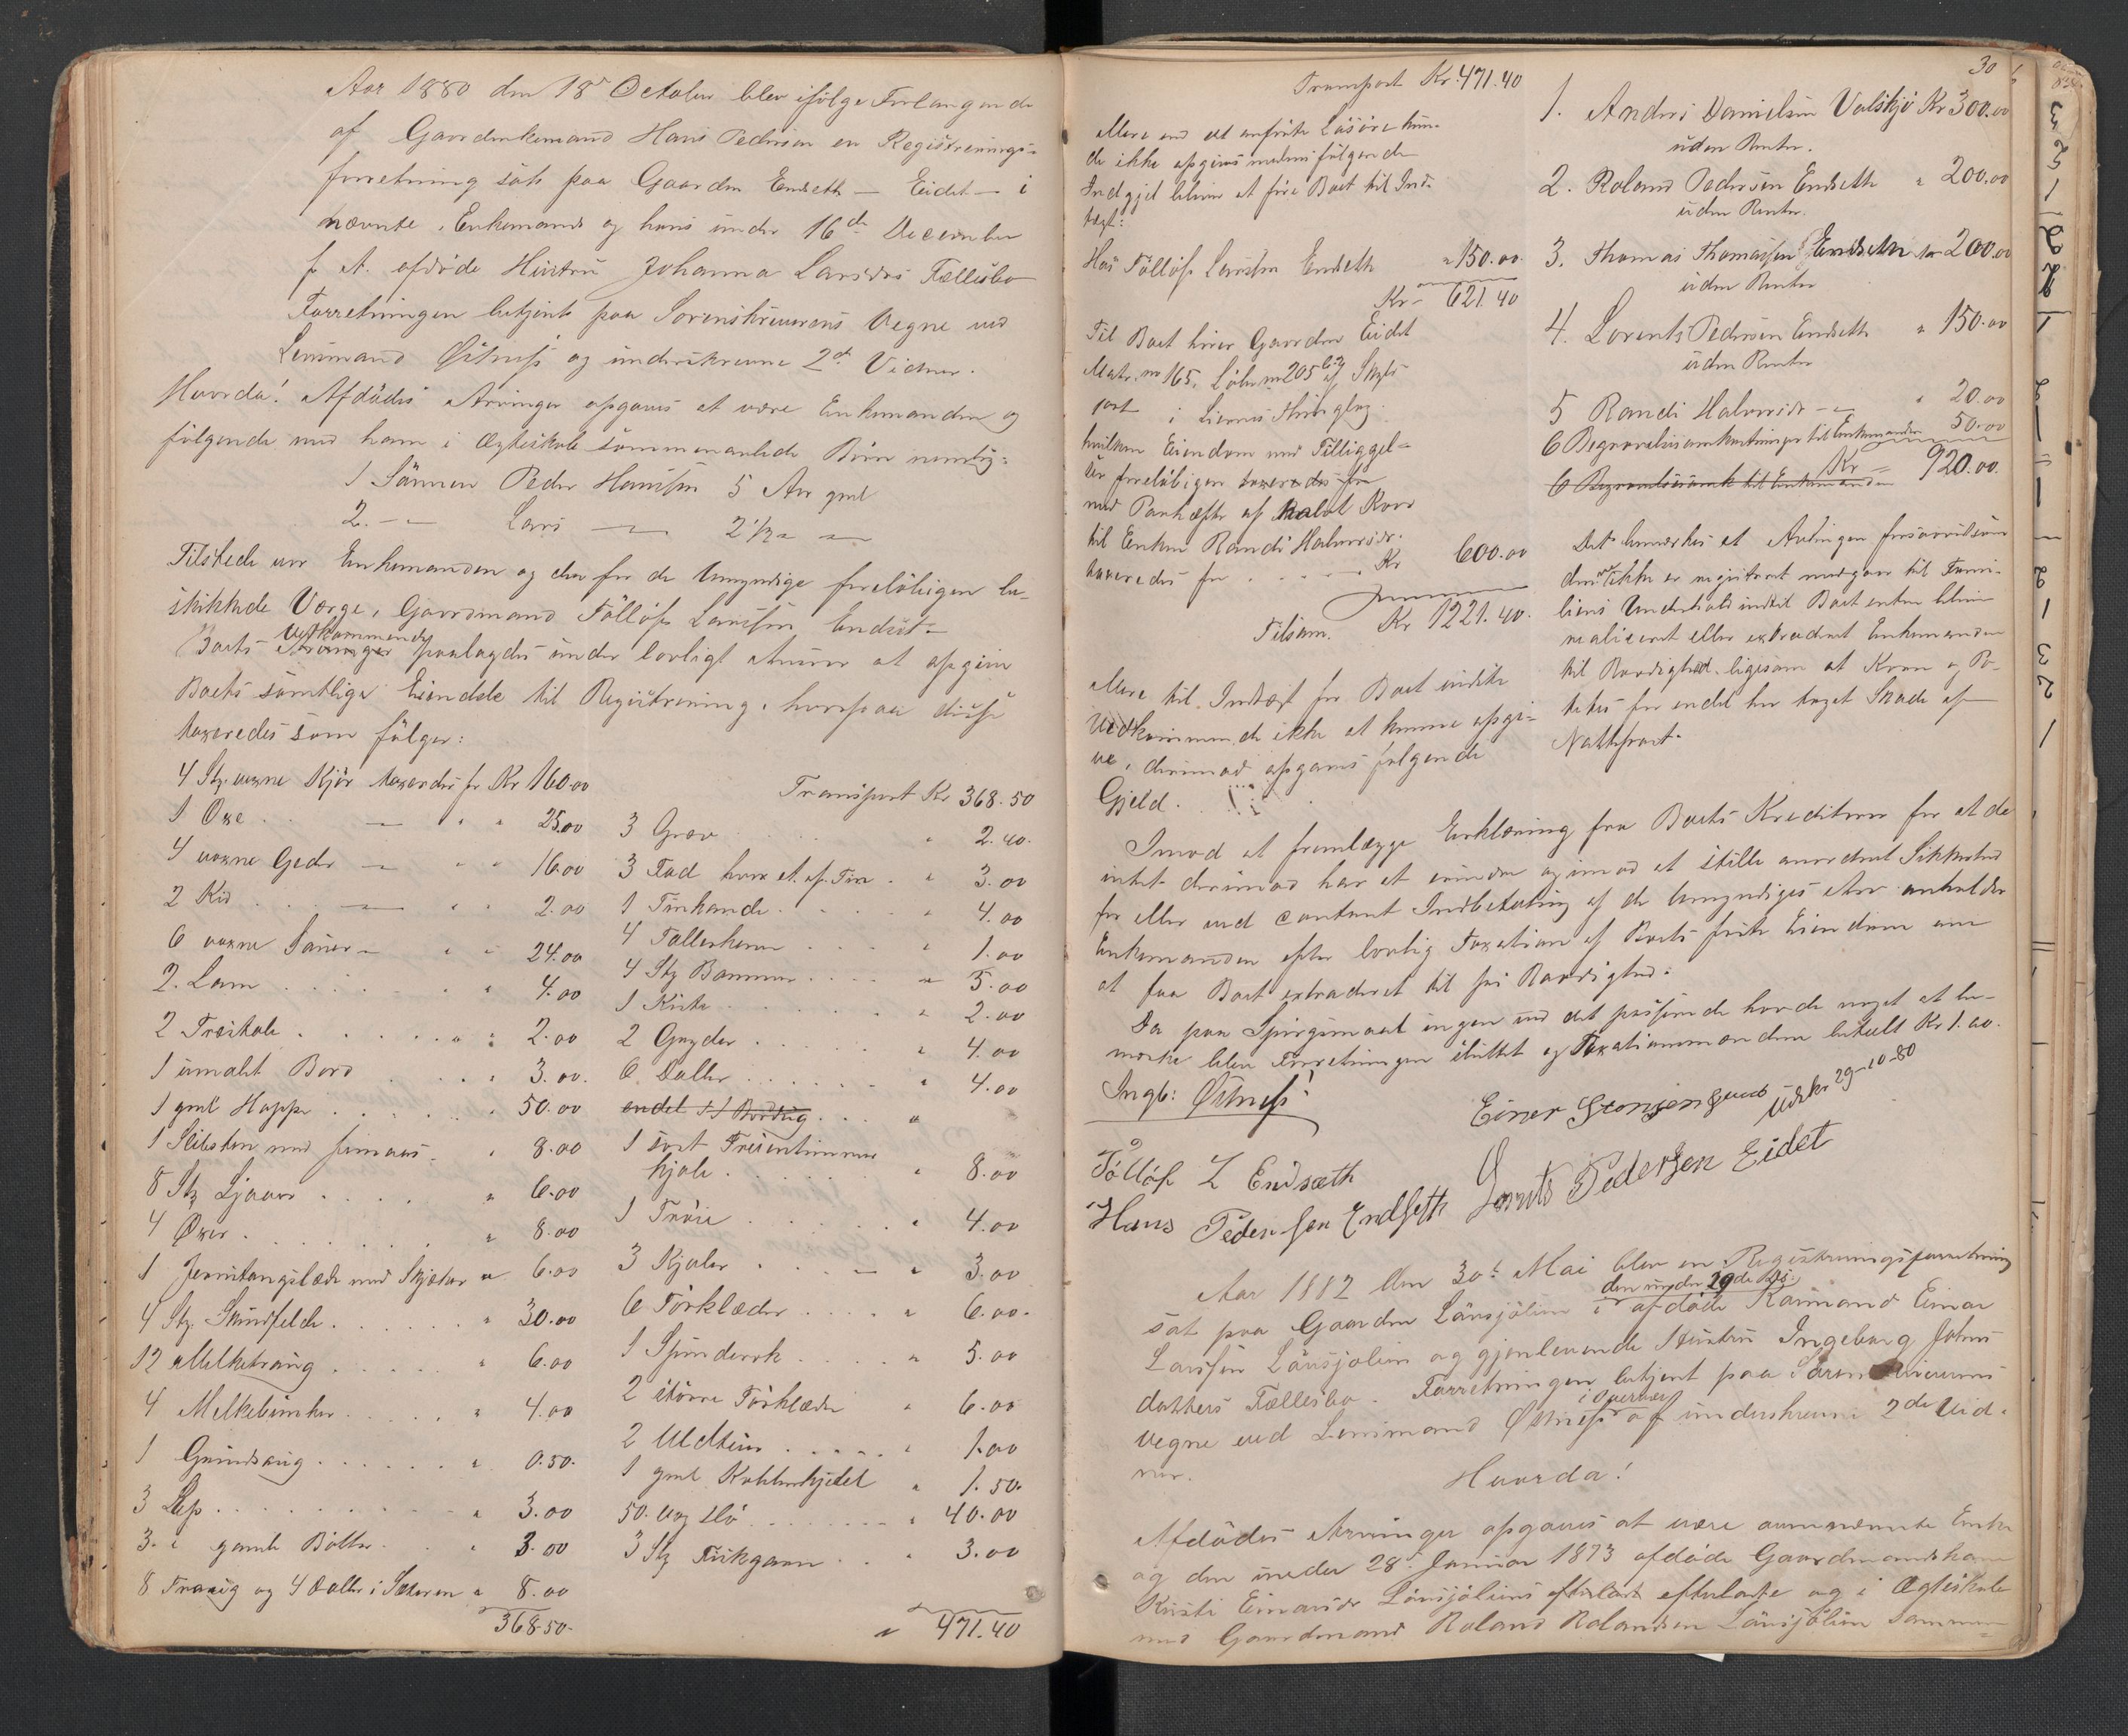 Aar 1880 den 18de October blev ifølge Forlangende
af Gaardenkemand Hans Pedersen en Registrerings-
forretning sat paa Gaarden Endseth – Eidet – i
nævnte Enkemands og hans under 16de December
f. A. afdøde Hustru Johanna Larsdrs Fællesbo
Forretningen betjent paa Sorenskriverens Vegne ved
Lensmand Østnæss og underskrevne 2de Vidner.
Hvorda! Afdødes Arvinger opgaves at være Enkemanden og
følgende med ham i Ægteskab sammenavlede Børn nemlig:
1 Sønnen Peder Hanssen 5 Aar gml
2. –„– Lars –„– 2 1/2 „ –„–
Tilstede var Enkemanden og den for de Umyndige foreløbigen be-
skikkede Værge, Gaardmand Tølløf Larssen Endset.
Boets Arvinger Vedkommende paalagdes under lovligt Ansvar at opgive
Boets samtlige Eiendele til Registrering, hvorpaa disse
taxeredes som følger:
4 Stz. voxne Kjør taxeredes for Kr 160.00
1 Oxe . . — „ „ 25.00
4 voxne Geder — „ „ 16.00
2 Kid . . — „ „ 2.00
6 voxne Sauer – „ „ 24.00
2. Lam . . . . . „ 4.00
2 Træstole . . . . . „ 2.00
1 umalt Bord . . . „ 3.00.
1 gml Hoppe . . . . „ 50.00
1 Slibesten med . „ 8.00
8 Stz Ljaaer . . . . „ 6.00
4 Øxer . . . . . „ 8.00
1 med Skjæker „ 6.00
4 Stz. Skindfelde . . . . „ 30.00
12 Melketraug . . . . „ 6.00
4 Melkebunker . . . . „ 4.00
1 . . . . . „ 0.50.
3 Løp . . . . . . „ 3.00
3. gamle Bøtter . . „ 3.00
8 Traug og 4 Daller i Sæteren „ 8.00
368.50.
Transport Kr 368.50
3 Grev . . . „ 2.40.
3 Fad hvoraf et af Tin . „ 3.00
1 Tinkande . . . . „ 4.00
4 Tallerkener . . . „ 1.00
4 Stz Bommer . . . . „ 5.00
1 Kiste . . . . . „ 2.00
2 Gryder . . . . . „ 4.00
6 Daller . . . . . „ 4.00
endel . . . „
1 sort Fruentimmer
kjole . . . . . „ 8.00
1 Trøie . . . . . „ 4.00
3 Kjoler . . . — „ 3.00
6 Tørklæder . . . . „ 6.00.
1 Spinderok . . . . „ 5.00
2 større Tørklæder „ 6.00
2 . . . . . „ 1.00
1 gml Kobberkjedel „ 1.50.
50. Vog Hø . . . . . „ 40.00
3 Stz Fiskegarn . . „ 3.00
„ 471.40
30
Transport Kr. 471.40
Mere end det anførte Løsøre kun-
de ikke opgives medens følgende
Indgjel bliver at føre Boet til Ind-
tægt:
Hos Tølløf Larssen Endseth „ 150.00
Kr – 621.40
Til Boet hører Gaarden Eidet
Matr. no 165, Løbe no 205 af Skyld
i Liernes Thinglag.
hvilken Eiendom med Tilliggel-
ser foreløbigen taxeredes for
med Paahæfte af Kaar
til Enken Randi Halvorsdr.
taxeredes for . . . . Kr 600.00
Tilsam. Kr 1221.40.
Mere til Indtægt for Boet vidste
Vedkommende ikke at kunne opgi-
ve, derimod opgaves følgende
Gjeld.
1. Anders Danielsen Valskjø Kr 300.00
uden Renter.
2. Roland Pedersen Endseth „ 200.00
uden Renter.
3. Thomas Thomassen Endseth „ 200.00
uden Renter
4. Lorents Pedersen Endseth „ 150.00
uden Renter
5 Randi Halvorsdr –„– „ 20.00
6 Begravelsesomkostninger til Enkemanden 50.00
Kr – 920.00.
6 Begravelsesomk til Enkemanden
Det bemærkes at Avlingen forsaavidt som
den ikke er registreret medgaar til Fami-
liens Underhold indtil Boet enten bliver
realiseret eller extraderet Enkemanden
til Raadighed, ligesom at Korn og Po-
teter for endel har taget Skade af
Nattefrost.
Imod at fremlægge Erklæring fra Boets Kreditorer for at de
intet derimod har at erindre og imod at stille anordnet Sikkerhed
for eller ved contant Indbetaling af de Umyndiges Arv anholder
Enkemanden efter lovlig Taxation af Boets faste Eiendom om
at faa Boet extraderet til fri Raadighed.
Da paa Spørgsmaal ingen ved det passerende havde noget at be-
mærke blev Forretningen sluttet og Taxationsmændene betalt Kr 1.00.
Ingb: Østnæss
Udskr 29-10-80
Tølløf L Endsæth
Hans Pedersen Endseth Lorents Pedersen Eidet
Aar 1882 den 30te Mai blev en Registreringsforretning
sat paa Gaarden Lænsjølien i den under 29de ds. afdøde Kaarmand Einar
Larssen Lænsjølien og gjenlevende Hustru Ingeborg Johns
datters Fællesbo. Forretningen betjent paa Sorenskriverens
vegne ved Lensmand Østnæss i Overvær af underskrevne 2de Vid-
ner.
Hvorda!
Afdødes Arvinger opgaves at være ovennævnte Enke
og den under 28de Januar 1873 afdøde Gaardmandskone
Kirsti Einarsdr Lænsjøliens efterladte efterladte og i Ægteskab
med Gaardmand Roland Rolandsen Lænsjølien sammen-